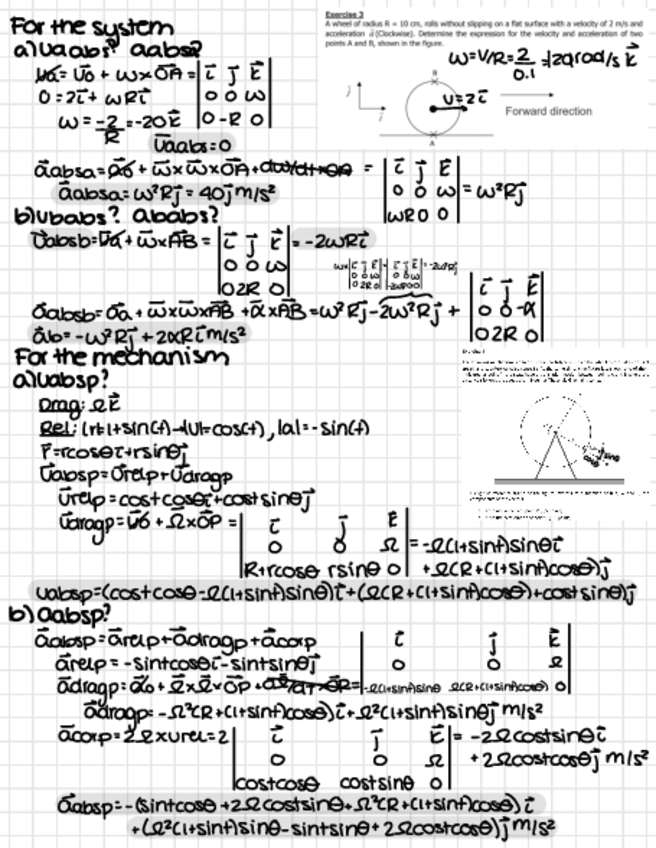 For the system
a) Vaabs? aabsa?
Exercise 3
A wheel of radius R = 10 cm, rolls without slipping on a flat surface with a velocity of 2 m/s and
acceleration a⃗ (Clockwise). Determine the expression for the velocity and acceleration of two
points A and B, shown in the figure.
ω=V/R=2/0.1
B
V=2i⃗
Forward direction
A
j⃗
i⃗
V⃗a=V⃗o+ω×OA= |i⃗ j⃗ k⃗; 0 0 ω; 0 -R 0|
0=2i⃗+ωRi⃗
ω=-2/R=-20k⃗
V⃗aabs=0
a⃗absa=a⃗o+ω⃗×ω⃗×OA+dω/dt×OA = |i⃗ j⃗ k⃗; 0 0 ω; ωR 0 0|=ω²Rj⃗
a⃗absa=ω²Rj⃗=40j⃗m/s²
b) Vbabs? ababs?
V⃗absb=V⃗a+ω⃗×AB= |i⃗ j⃗ k⃗; 0 0 ω; 0 2R 0|=-2ωRi⃗
a⃗absb=a⃗a+ω⃗×ω⃗×AB+α⃗×AB=ω²Rj⃗-2ω²Rj⃗+ |i⃗ j⃗ k⃗; 0 0 -α; 0 2R 0|
a⃗b=-ω²Rj⃗+2αRi⃗m/s²
For the mechanism
a) Vabsp?
Drag: Ωk⃗
Rel: |r|=1+sin(t)→|v|=cos(t), |a|=-sin(t)
r⃗=rcosθi⃗+rsinθj⃗
V⃗absp=V⃗relp+V⃗dragp
V⃗relp=costcosθi⃗+costsinθj⃗
V⃗dragp=V⃗o+Ω⃗×OP= |i⃗ j⃗ k⃗; 0 0 Ω; R+rcosθ rsinθ 0|=-Ω(1+sint)sinθi⃗
+Ω(R+(1+sint)cosθ)j⃗
Vabsp=(costcosθ-Ω(1+sint)sinθ)i⃗+(Ω(R+(1+sint)cosθ)+costsinθ)j⃗
b) aabsp?
a⃗absp=a⃗relp+a⃗dragp+a⃗corp
a⃗relp=-sintcosθi⃗-sintsinθj⃗
a⃗dragp=a⃗o+Ω⃗×Ω⃗×OP+dΩ⃗/dt×OP= |i⃗ j⃗ k⃗; 0 0 Ω; -Ω(1+sint)sinθ Ω(R+(1+sint)cosθ) 0|
a⃗dragp=-Ω²(R+(1+sint)cosθ)i⃗+Ω²(1+sint)sinθj⃗m/s²
a⃗corp=2Ω×vrel=2 |i⃗ j⃗ k⃗; 0 0 Ω; costcosθ costsinθ 0|=-2Ωcostsinθi⃗
+2Ωcostcosθj⃗m/s²
a⃗absp=-(sintcosθ+2Ωcostsinθ+Ω²(R+(1+sint)cosθ)i⃗
+(Ω²(1+sint)sinθ-sintsinθ+2Ωcostcosθ)j⃗m/s²